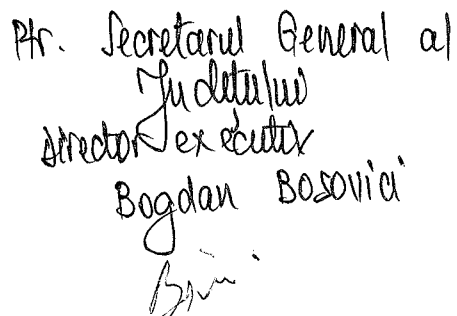 Ptr. Secretarul General al
Judetului
Director executiv
Bogdan Bosovici